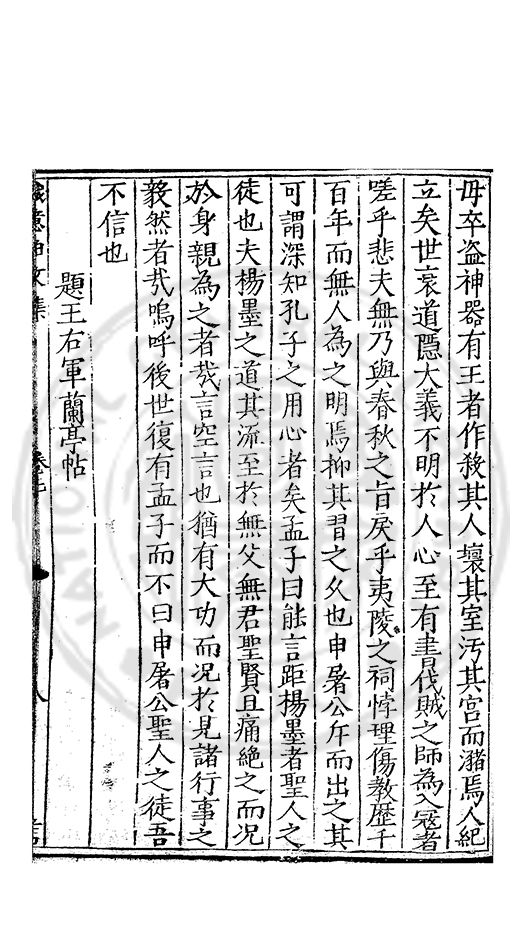 毋卒盗神器有王者作殺其人壞其室汚其宮而瀦焉人紀
立矣世衰道隠大義不明扵人心至有書伐賊之師為入冦者
嗟乎悲夫無乃與春秋之旨戾乎夷陵之祠悖理傷教歴千
百年而無人為之明焉抑其習之久也申屠公斥而出之其
可謂深知孔子之用心者矣孟子曰能言距揚墨者聖人之
徒也夫揚墨之道其流至扵無父無君聖賢且痛絶之而况
扵身親為之者㦲言空言也猶有大功而况扵見諸行事之
毅然者㦲嗚呼後世復有孟子而不曰申屠公聖人之徒吾
不信也
題王右軍蘭亭帖
文集
八
NATIONAL